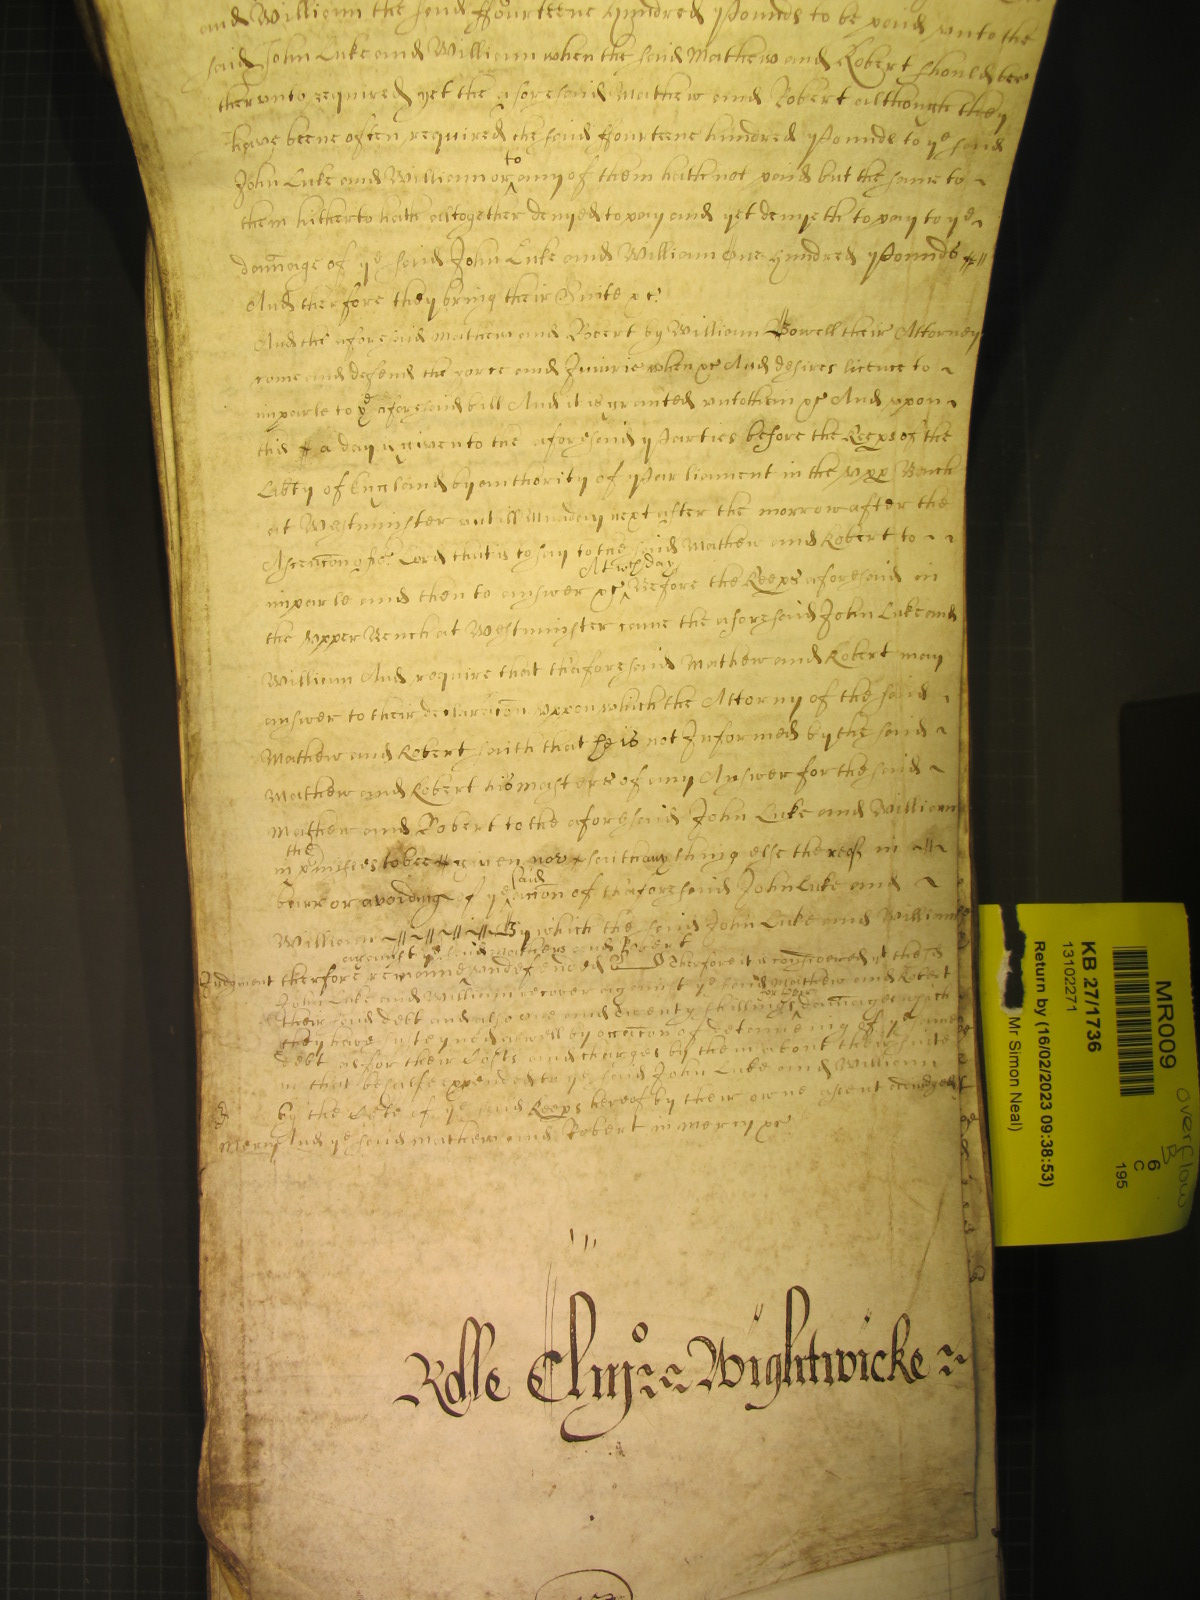 and William the said ffourteene hundred Pounds to be paid unto the
said John Luke and William when the said Mathew and Robert should bee
therunto required yet the aforesaid Mathew and Robert although they
have beene often required the said ffourteene hundred Pounds to ye said
John Luke and William or to any of them hath not paid but the same to
them hitherto hath altogether denyed to pay and yet denyeth to pay to ye
damage of ye said John Luke and William One hundred Pounds
And therfore they bring their Suite &c
And the aforesaid Mathew and Robert by William Bowell their Attorney
come and defend the force and Iniurie when &c And desires licence to
imparle to ye aforesaid bill And it is granted unto them &c And upon
this a day is given to the aforesaid Parties before the Keeps of the
Libty of England by authority of Parliament in the Upp Bench
at Westminster untill Munday next after the morrow after the
Ascencon of Lord that is to say to the said Mathew and Robert to
imparle and then to answer &c At wch day Before the Keeps aforesaid in
the Upper Bench at Westminster came the aforesaid John Luke and
William And require that thaforesaid Mathew and Robert may
answer to their declaracon uppon which the Attorny of the said
Mathew and Robert saith that he is not Informed by the said
Mathew and Robert his masters of any Answer for the said
Mathew and Robert to the aforesaid John Luke and William
in the pmisses to bee given nor saith any thing else thereof in
barre or avoiding of ye said accon of thaforesaid John Luke and
William By which the said John Luke and William
against ye said Mathew and Robert
Judgment therfore remaine undefended Therfore it is considered yt the sd
John Luke and William recover against ye said Mathew and Robert
their said debt and also one and twenty shillings for their damages which
they have susteyned aswell by occacon of deteineing of ye same
debt as for their Costs and charges by them about their suite
in that behalfe expended to ye said John Luke and William
by the Cort of ye said Keeps hereof by their owne assent adiudged
Mercy And ye said Mathew and Robert in mercy &c
Rolle Wightwicke
MR009
KB 27/1736
13102271
Return by (16/02/2023 09:38:53)
Mr Simon Neal)
6
C
195
Overflow
B